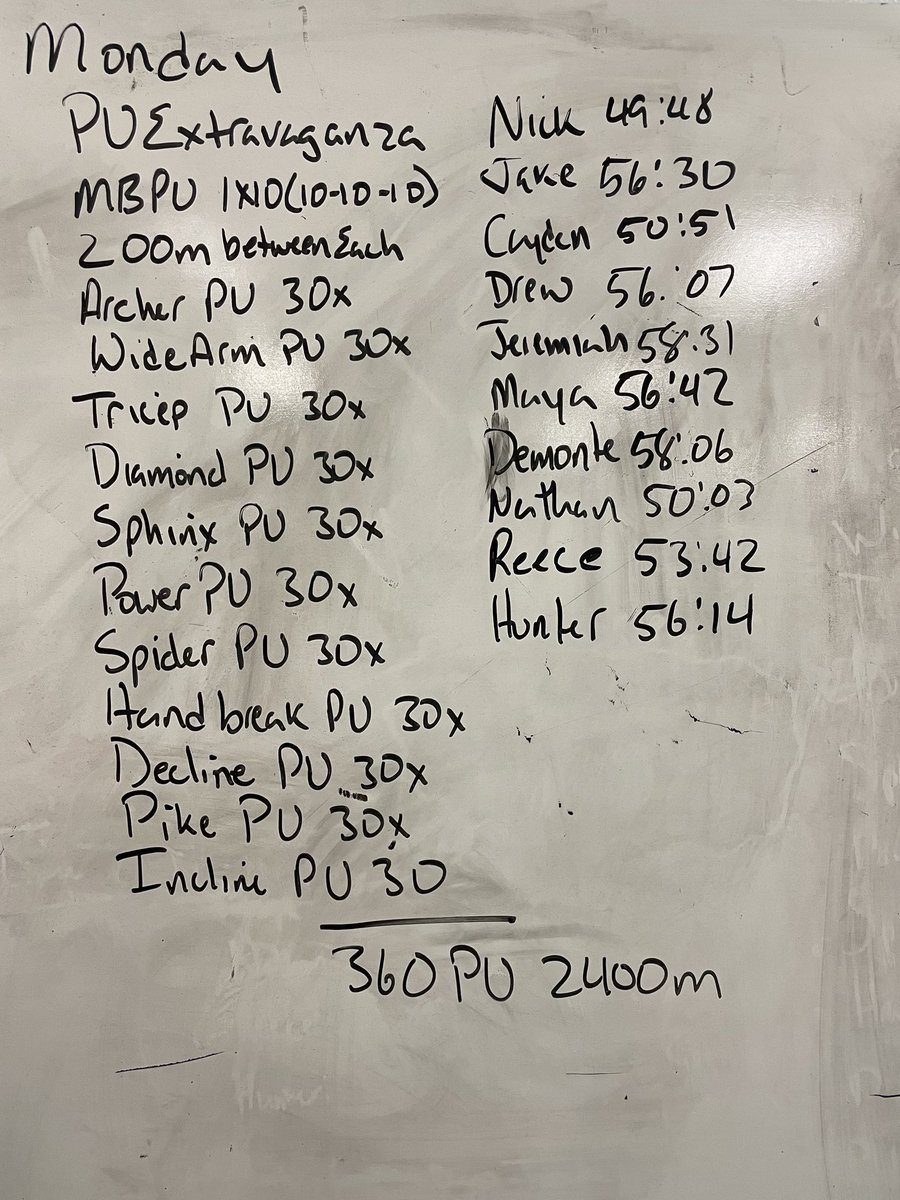 Monday
PU Extravaganza
MBPU 1x10(10-10-10)
200m between Each
Archer PU 30x
Wide Arm PU 30x
Tricep PU 30x
Diamond PU 30x
Sphinx PU 30x
Power PU 30x
Spider PU 30x
Hand break PU 30x
Decline PU 30x
Pike PU 30x
Incline PU 30
360 PU 2400m
Nick 49:48
Jake 56:30
Cayden 50:51
Drew 56:07
Jeremiah 58:31
Maya 56:42
Demonte 58:06
Nathan 50:03
Reece 53:42
Hunter 56:14